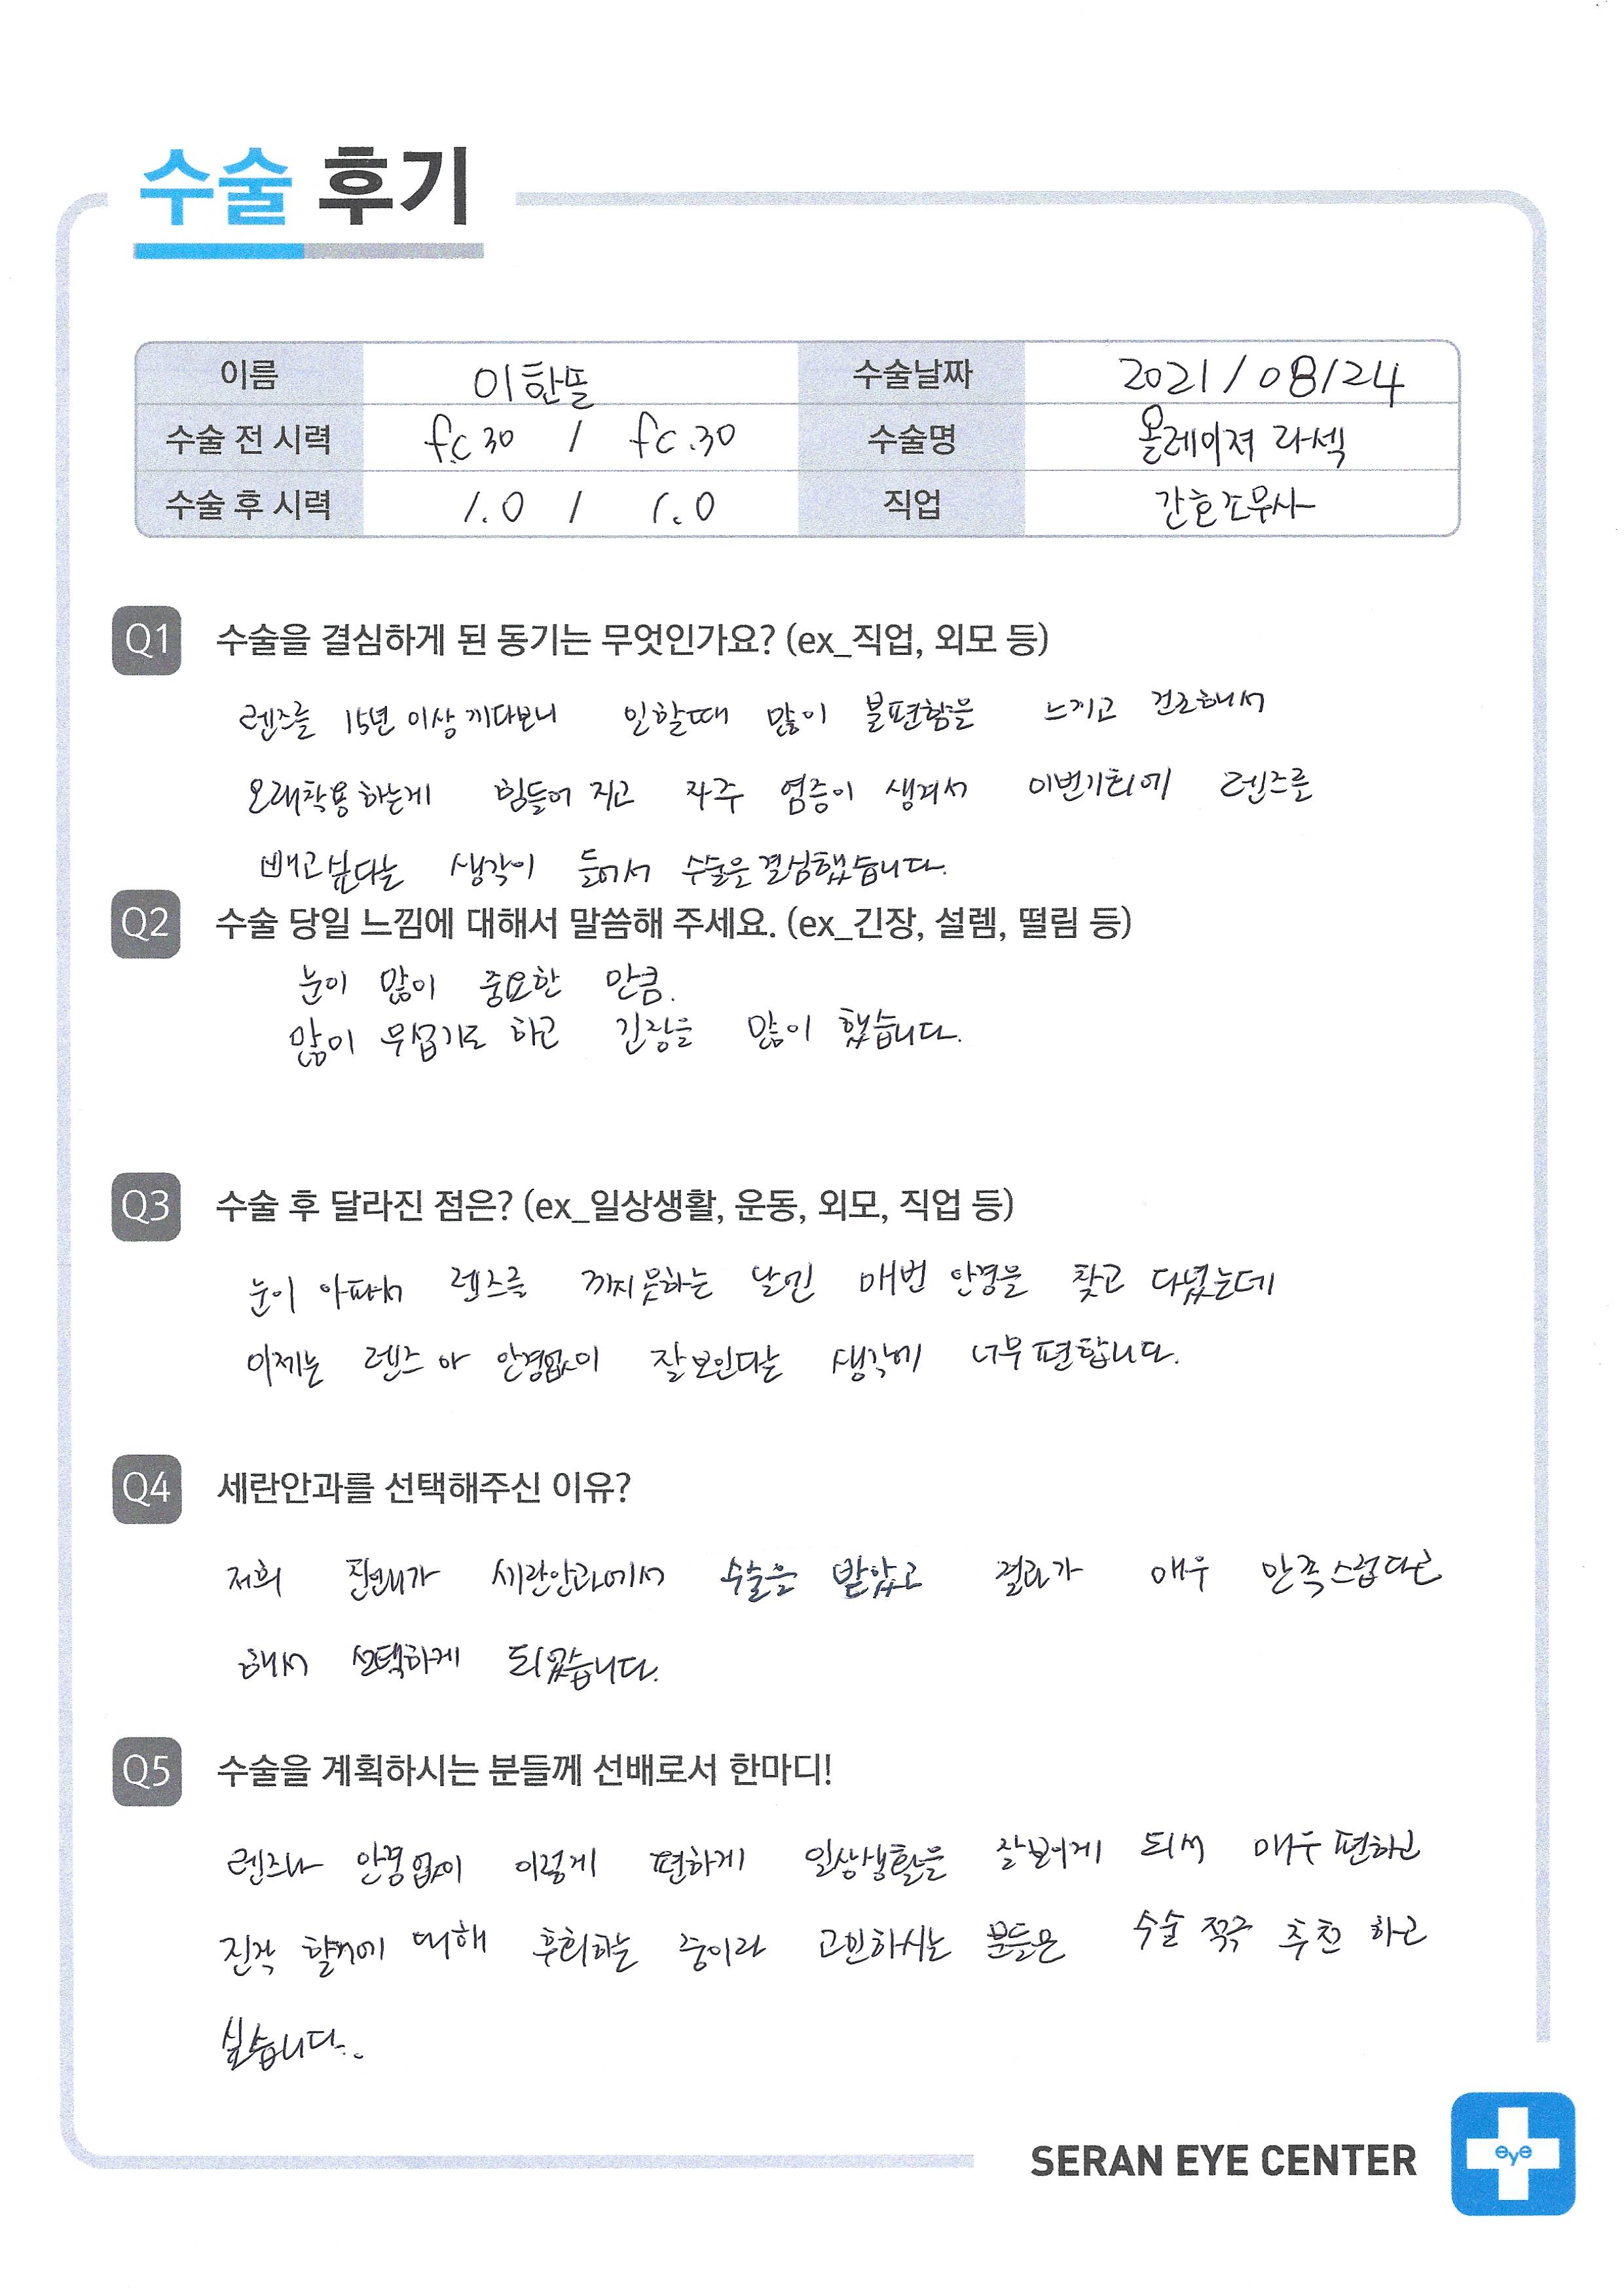 수술 후기
이름 이한뜰 수술날짜 2021/08/24
수술 전 시력 fc 30 / fc.30 수술명 올레이져 라섹
수술 후 시력 1.0 / 1.0 직업 간호조무사
Q1 수술을 결심하게 된 동기는 무엇인가요? (ex_직업, 외모 등)
렌즈를 15년 이상 끼다보니 일할때 많이 불편함을 느끼고 건조해서
오래착용 하는게 힘들어 지고 자주 염증이 생겨서 이번기회에 렌즈를
빼고싶다는 생각이 들어서 수술을 결심했습니다.
Q2 수술 당일 느낌에 대해서 말씀해 주세요. (ex_긴장, 설렘, 떨림 등)
눈이 많이 중요한 만큼.
많이 무섭기도 하고 긴장을 많이 했습니다.
Q3 수술 후 달라진 점은? (ex_일상생활, 운동, 외모, 직업 등)
눈이 아파서 렌즈를 끼지못하는 날엔 매번 안경을 찾고 다녔는데
이제는 렌즈 아 안경없이 잘보인다는 생각에 너무 편합니다.
Q4 세란안과를 선택해주신 이유?
저희 세란안과에서 수술을 받았고 결과가 매우 만족스럽다고
해서 선택하게 되었습니다.
Q5 수술을 계획하시는 분들께 선배로서 한마디!
렌즈나 안경없이 이렇게 편하게 일상생활을 잘보이게 되서 매우 편하고
진작 할껄에 대해 후회하는 중이라 고민하시는 분들은 수술 적극 추천 하고
싶습니다..
SERAN EYE CENTER
eye